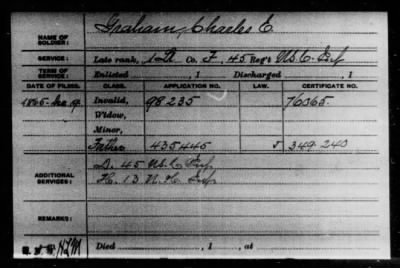 NAME OF SOLDIER: Graham, Charles E.
SERVICE: Late rank, 1 Lt Co. F, 45 Reg't U.S.C. Inf
TERM OF SERVICE: Enlisted , 1 Discharged , 1
DATE OF FILING. CLASS. APPLICATION NO. LAW. CERTIFICATE NO.
1865 19. Invalid, 98235 76065.
Widow,
Minor,
Father 435445 J 349.240
ADDITIONAL SERVICES: D. 45 U.S.C. Inf
H. 13 N.H. Inf
REMARKS:
Died , 1 , at